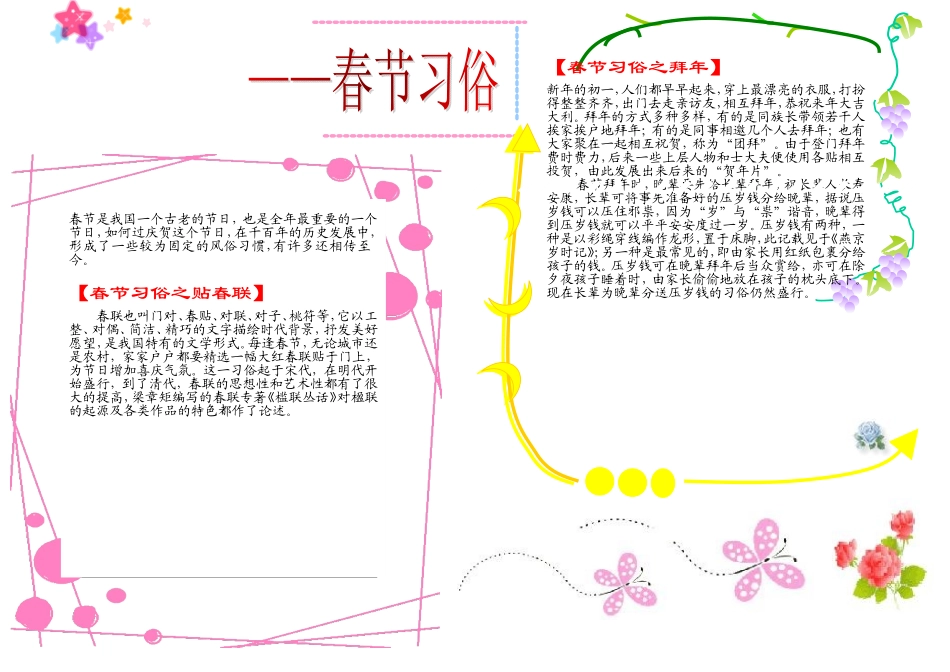 ——春节习俗
春节是我国一个古老的节日，也是全年最重要的一个
节日，如何过庆贺这个节日，在千百年的历史发展中，
形成了一些较为固定的风俗习惯，有许多还相传至
今。
【春节习俗之贴春联】
春联也叫门对、春贴、对联、对子、桃符等，它以工
整、对偶、简洁、精巧的文字描绘时代背景，抒发美好
愿望，是我国特有的文学形式。每逢春节，无论城市还
是农村，家家户户都要精选一幅大红春联贴于门上，
为节日增加喜庆气氛。这一习俗起于宋代，在明代开
始盛行，到了清代，春联的思想性和艺术性都有了很
大的提高，梁章矩编写的春联专著《槛联丛话》对楹联
的起源及各类作品的特色都作了论述。
【春节习俗之拜年】
新年的初一，人们都早早起来，穿上最漂亮的衣服，打扮
得整整齐齐，出门去走亲访友，相互拜年，恭祝来年大吉
大利。拜年的方式多种多样，有的是同族长带领若干人
挨家挨户地拜年；有的是同事相邀几个人去拜年；也有
大家聚在一起相互祝贺，称为“团拜”。由于登门拜年
费时费力，后来一些上层人物和士大夫便使用各贴相互
投贺，由此发展出来后来的“贺年片”。
春节拜年时，晚辈要先给长辈拜年，祝长辈人长寿
安康，长辈可将事先准备好的压岁钱分给晚辈，据说压
岁钱可以压住邪祟，因为“岁”与“祟”谐音，晚辈得
到压岁钱就可以平平安安度过一岁。压岁钱有两种，一
种是以彩绳穿线编作龙形，置于床脚，此记载见于《燕京
岁时记》；另一种是最常见的，即由家长用红纸包裹分给
孩子的钱。压岁钱可在晚辈拜年后当众赏给，亦可在除
夕夜孩子睡着时，由家长偷偷地放在孩子的枕头底下。
现在长辈为晚辈分送压岁钱的习俗仍然盛行。